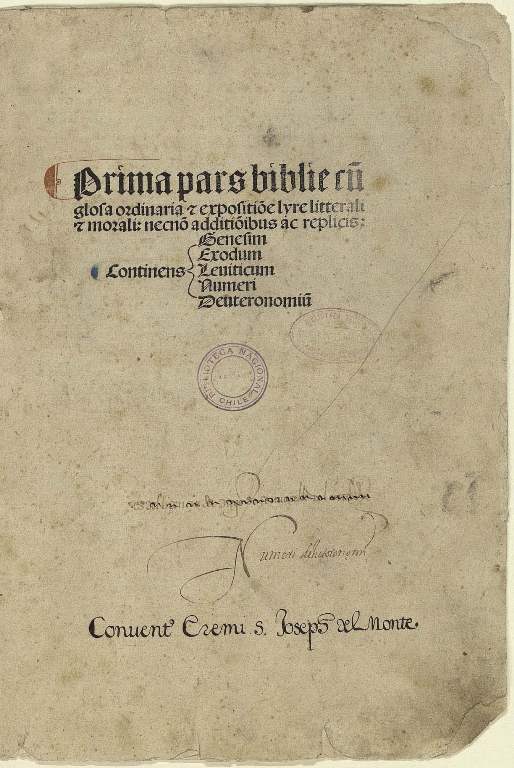 Prima pars biblie cū
glosa ordinaria ⁊ expositiōe lyre litterali
⁊ morali: necnō additiōibus ac replicis:
Genesim
Exodum
Continens Leviticum
Numeri
Deuteronomiū
BIBLIOTECA NACIONAL
CHILE
Numeri
Conuent⁹ Eremi S. Joseph del Monte.